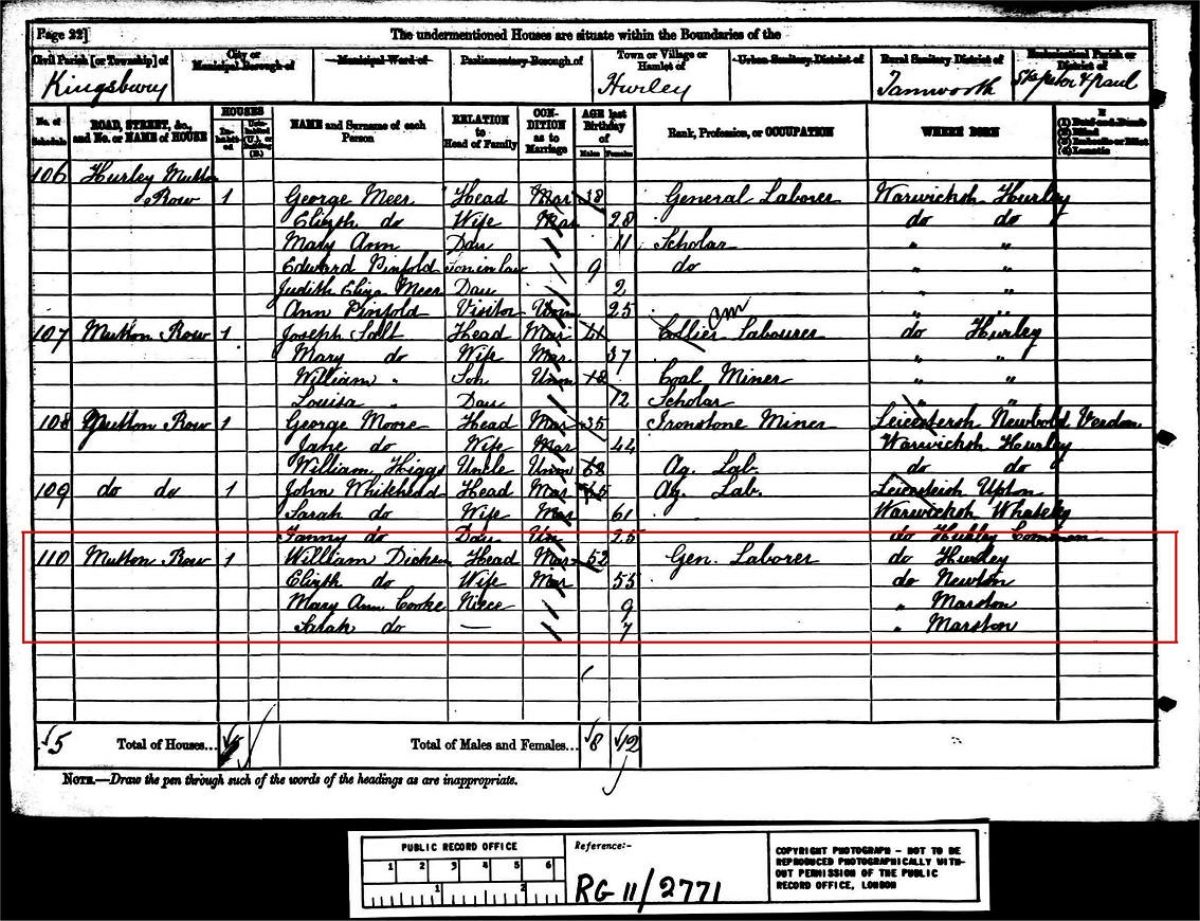 Page 22]
The undermentioned Houses are situate within the Boundaries of the
Civil Parish [or Township] of City or Municipal Borough of Municipal Ward of Parliamentary Borough of Town or Village or Hamlet of Urban Sanitary District of Rural Sanitary District of Ecclesiastical Parish or District of
Kingsbury Hurley Tamworth St Peter & Paul
No. of Schedule ROAD, STREET, &c., and No. or NAME of HOUSE HOUSES Inhabited Uninhabited (U.), or Building (B.) NAME and Surname of each Person RELATION to Head of Family CONDITION as to Marriage AGE last Birthday of Males Females Rank, Profession, or OCCUPATION WHERE BORN If (1) Deaf-and-Dumb (2) Blind (3) Imbecile or Idiot (4) Lunatic
106 Hurley Mutton
Row 1 George Meer Head Mar 38 General Laborer Warwicksh Hurley
Elizth do Wife Mar 28 do do
Mary Ann Dau 11 Scholar " "
Edward Pinfold Son in law 9 do " "
Judith Eliza Meer Dau 2 " "
Ann Pinfold Visitor Unm 25 " "
107 Mutton Row 1 Joseph Salt Head Mar Collier Labourer do Hurley
Mary do Wife Mar 37 " "
William " Son Unm 18 Coal Miner " "
Louisa " Dau 12 Scholar " "
108 Mutton Row 1 George Moore Head Mar 35 Ironstone Miner Leicestersh Newbold Verdon
Jane do Wife Mar 44 Warwicksh Hurley
William Higgs Uncle Unm Ag. Lab. do do
109 do do 1 John Whitehead Head Mar 65 Ag. Lab. Leicestersh Upton
Sarah do Wife Mar 61 Warwicksh Whateley
Fanny do Dau Un 25 do Hurley Common
110 Mutton Row 1 William Dicken Head Mar 52 Gen. Laborer do Hurley
Elizth do Wife Mar 55 do Newton
Mary Ann Cooke Niece 9 " Marston
Sarah do — 7 " Marston
5 Total of Houses... 5 Total of Males and Females... 8 12
NOTE.—Draw the pen through such of the words of the headings as are inappropriate.
PUBLIC RECORD OFFICE
1 2 3 4 5 6
1 2
Reference:-
RG 11/2771
COPYRIGHT PHOTOGRAPH - NOT TO BE
REPRODUCED PHOTOGRAPHICALLY WITH-
OUT PERMISSION OF THE PUBLIC
RECORD OFFICE, LONDON